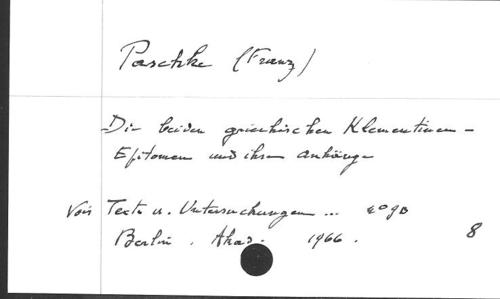 Paschke (Franz)
Die beiden griechischen Klementinen-
Epitomen und ihre Anhänge
Voir Texte u. Untersuchungen ... 4° 90
Berlin. Akad. 1966.
8